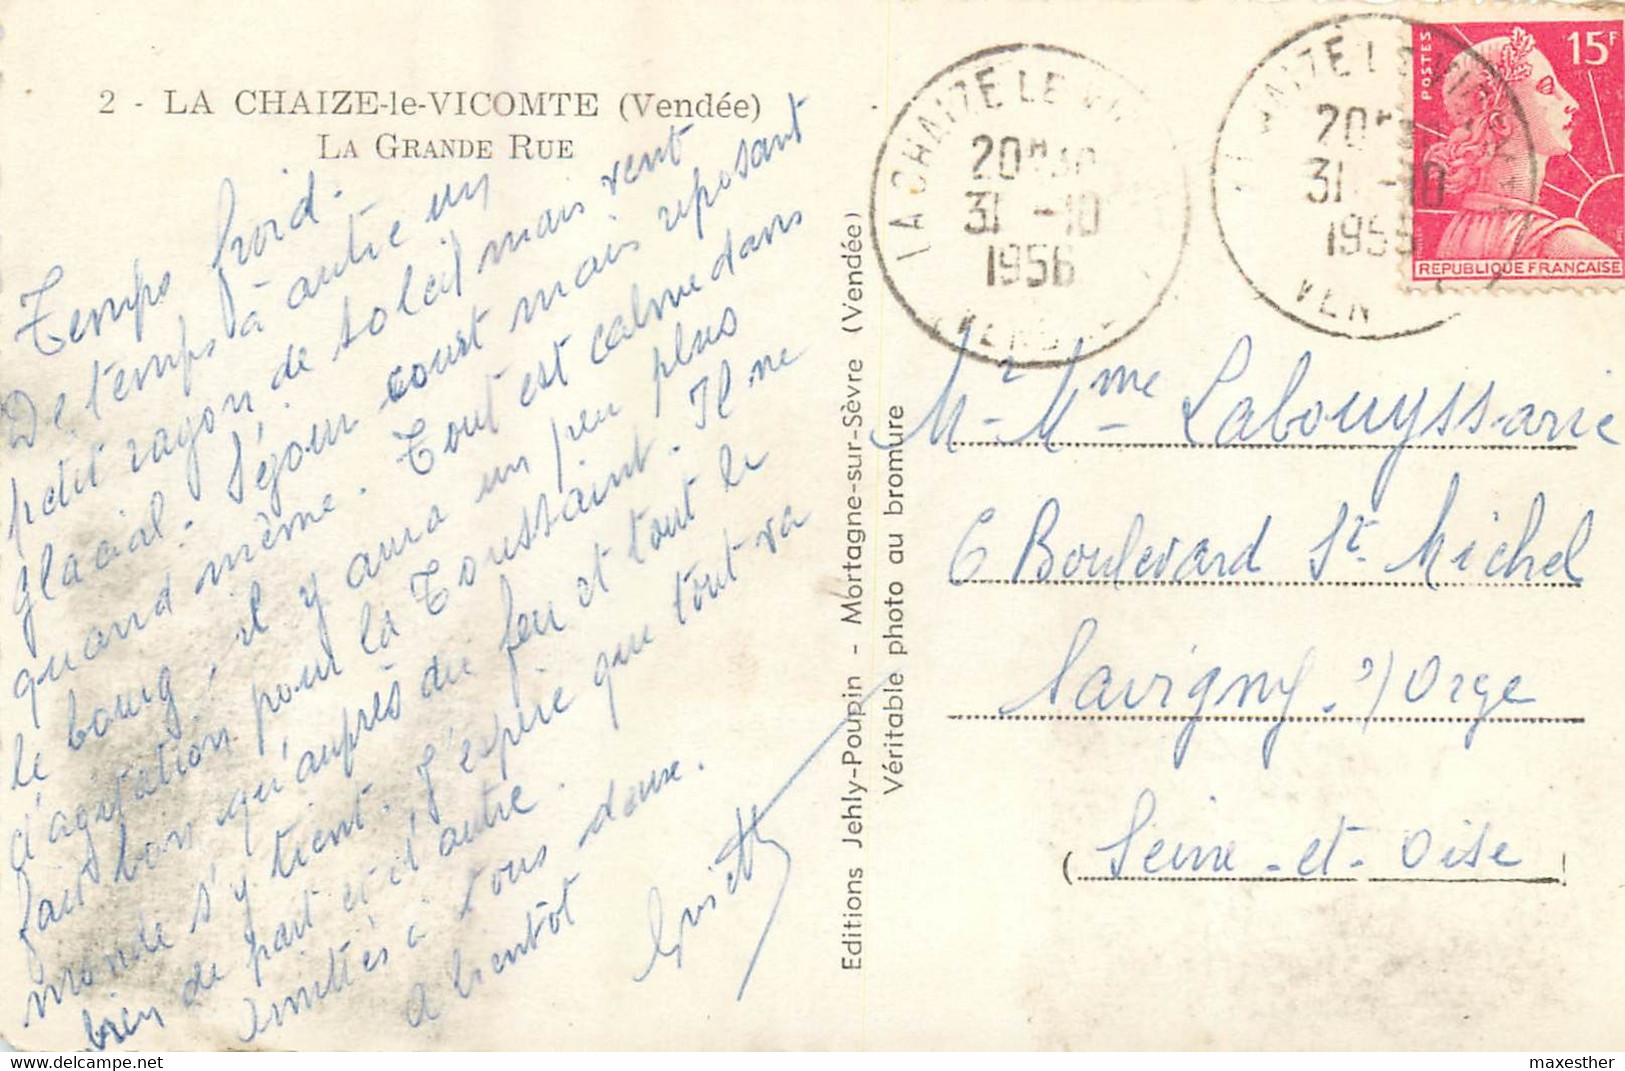 2 - LA CHAIZE-le-VICOMTE (Vendée)
LA GRANDE RUE
Temps froid.
De temps à autre un
petit rayon de soleil mais vent
glacial. Séjour court mais reposant
quand même. Tout est calme dans
le bourg, il y aura un peu plus
d'agitation pour la Toussaint. Il ne
fait bon qu'auprès du feu et tout le
monde s'y tient. J'espère que tout va
bien de part et d'autre.
Amitiés à tous deux.
A bientôt
Editions Jehly-Poupin - Mortagne-sur-Sèvre (Vendée)
Véritable photo au bromure
LA CHAIZE LE VI
20H30
31 -10
1956
(VEND
HAIZE LE VI
20H30
31 -10
195
VEN
POSTES
15F
REPUBLIQUE FRANÇAISE
Mr Mme Labouyssarie
6 Boulevard St Michel
Savigny s/ Orge
(Seine-et-Oise)
maxesther